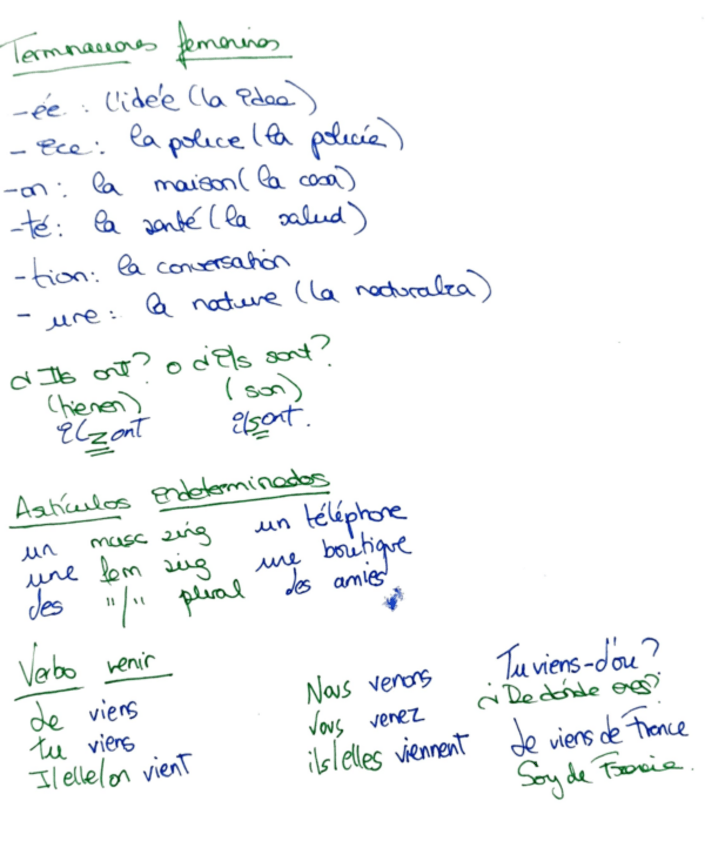 Terminaciones femeninas
-ée : l'idée (la idea)
- ice: la police (la policía)
-on: la maison (la casa)
-té: la santé (la salud)
-tion: la conversation
- ure: la nature (la naturalza)
¿Ils ont? o ¿Ils sont?
(tienen) (son)
ilzont ilsont.
Artículos indeterminados
un masc sing un téléphone
une fem sing une boutique
des "/" plural des amies
Verbo venir
Je viens
tu viens
Il/elle/on vient
Nous venons
Vous venez
ils/elles viennent
Tu viens-d'ou?
¿De dónde eres?
Je viens de France
Soy de Francia.